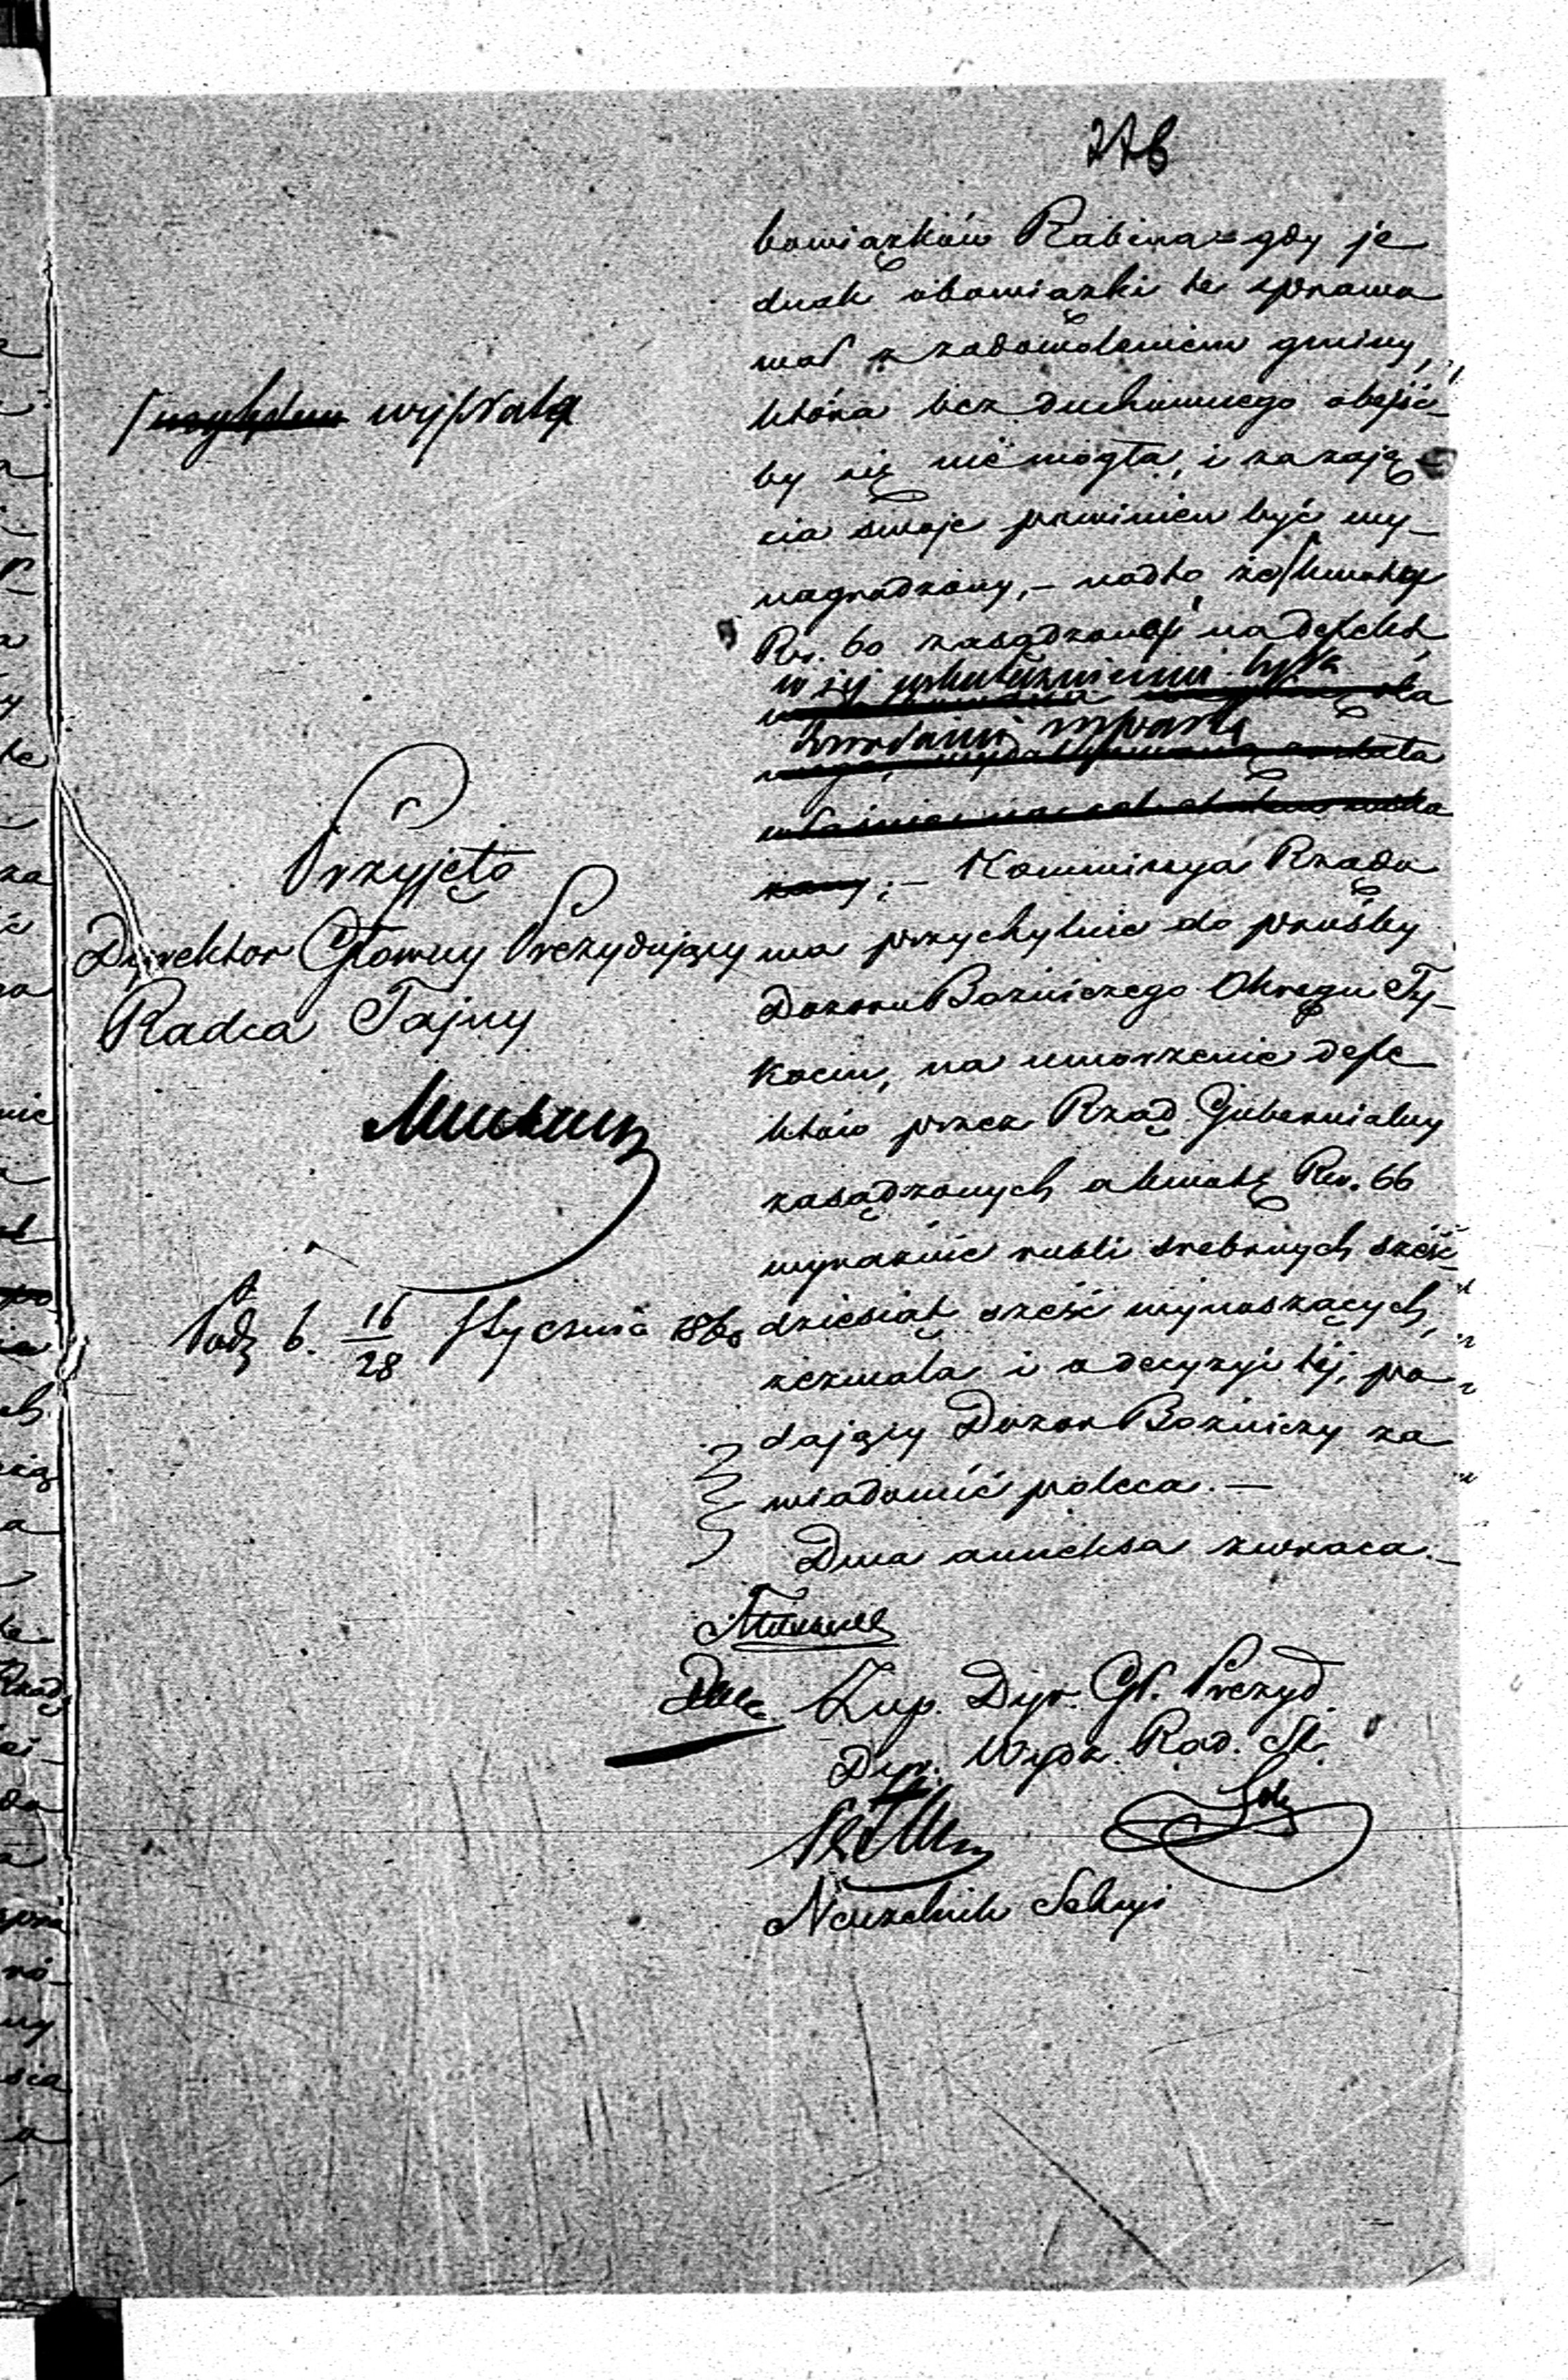 276
bowiązków Rabina – gdy je
dnak obowiązki te sprawo
wał z zadowoleniem gminy,
która bez duchownego obejść
by się nie mogła, i za zaję
cia swoje powinien być wy_
nagrodzony, – nadto że kwota
Rs. 60 zasądzona na defekt,
w jej uskutecznieniu była
dowodami wsparta
; – Kommissya Rządo
wa przychylnie do prośby
Dozoru Bożniczego Okręgu Ty_
kocin, na umorzenie defe
któw przez Rząd Gubernialny
zasądzonych a kwotę Rsr. 66
wyraźnie rubli srebrnych sześć_
dziesiąt sześć wynoszących,
zezwala i o decyzyi tej, po
dający Dozór Bożniczy za
wiadomić poleca. –
Dwa anneksa zwraca. –
wypłata
Przyjęto
Dyrektor Główny Prezydujący
Radca Tajny
Podp. b. 16/28 Stycznia 1860
Zup. Dyr. Gł. Prezyd.
Dyr. Wydz. Rad. St.
Naczelnik Sekcyi